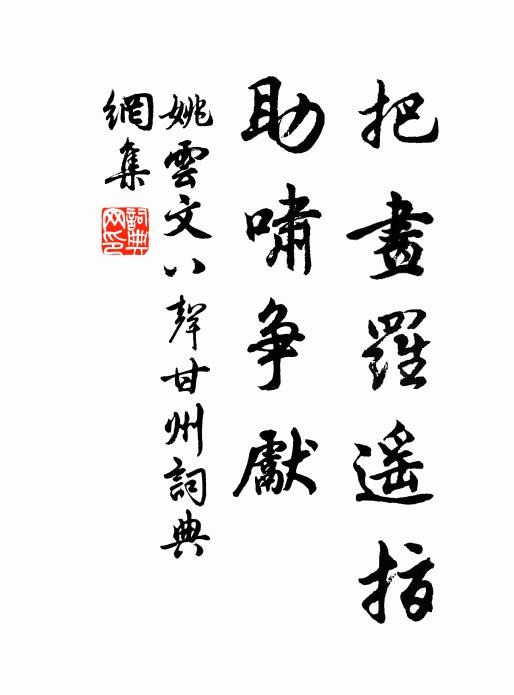 把畫羅遥指
助嘯爭獻
姚雲文八聲甘州詞典
網集
詞典網印